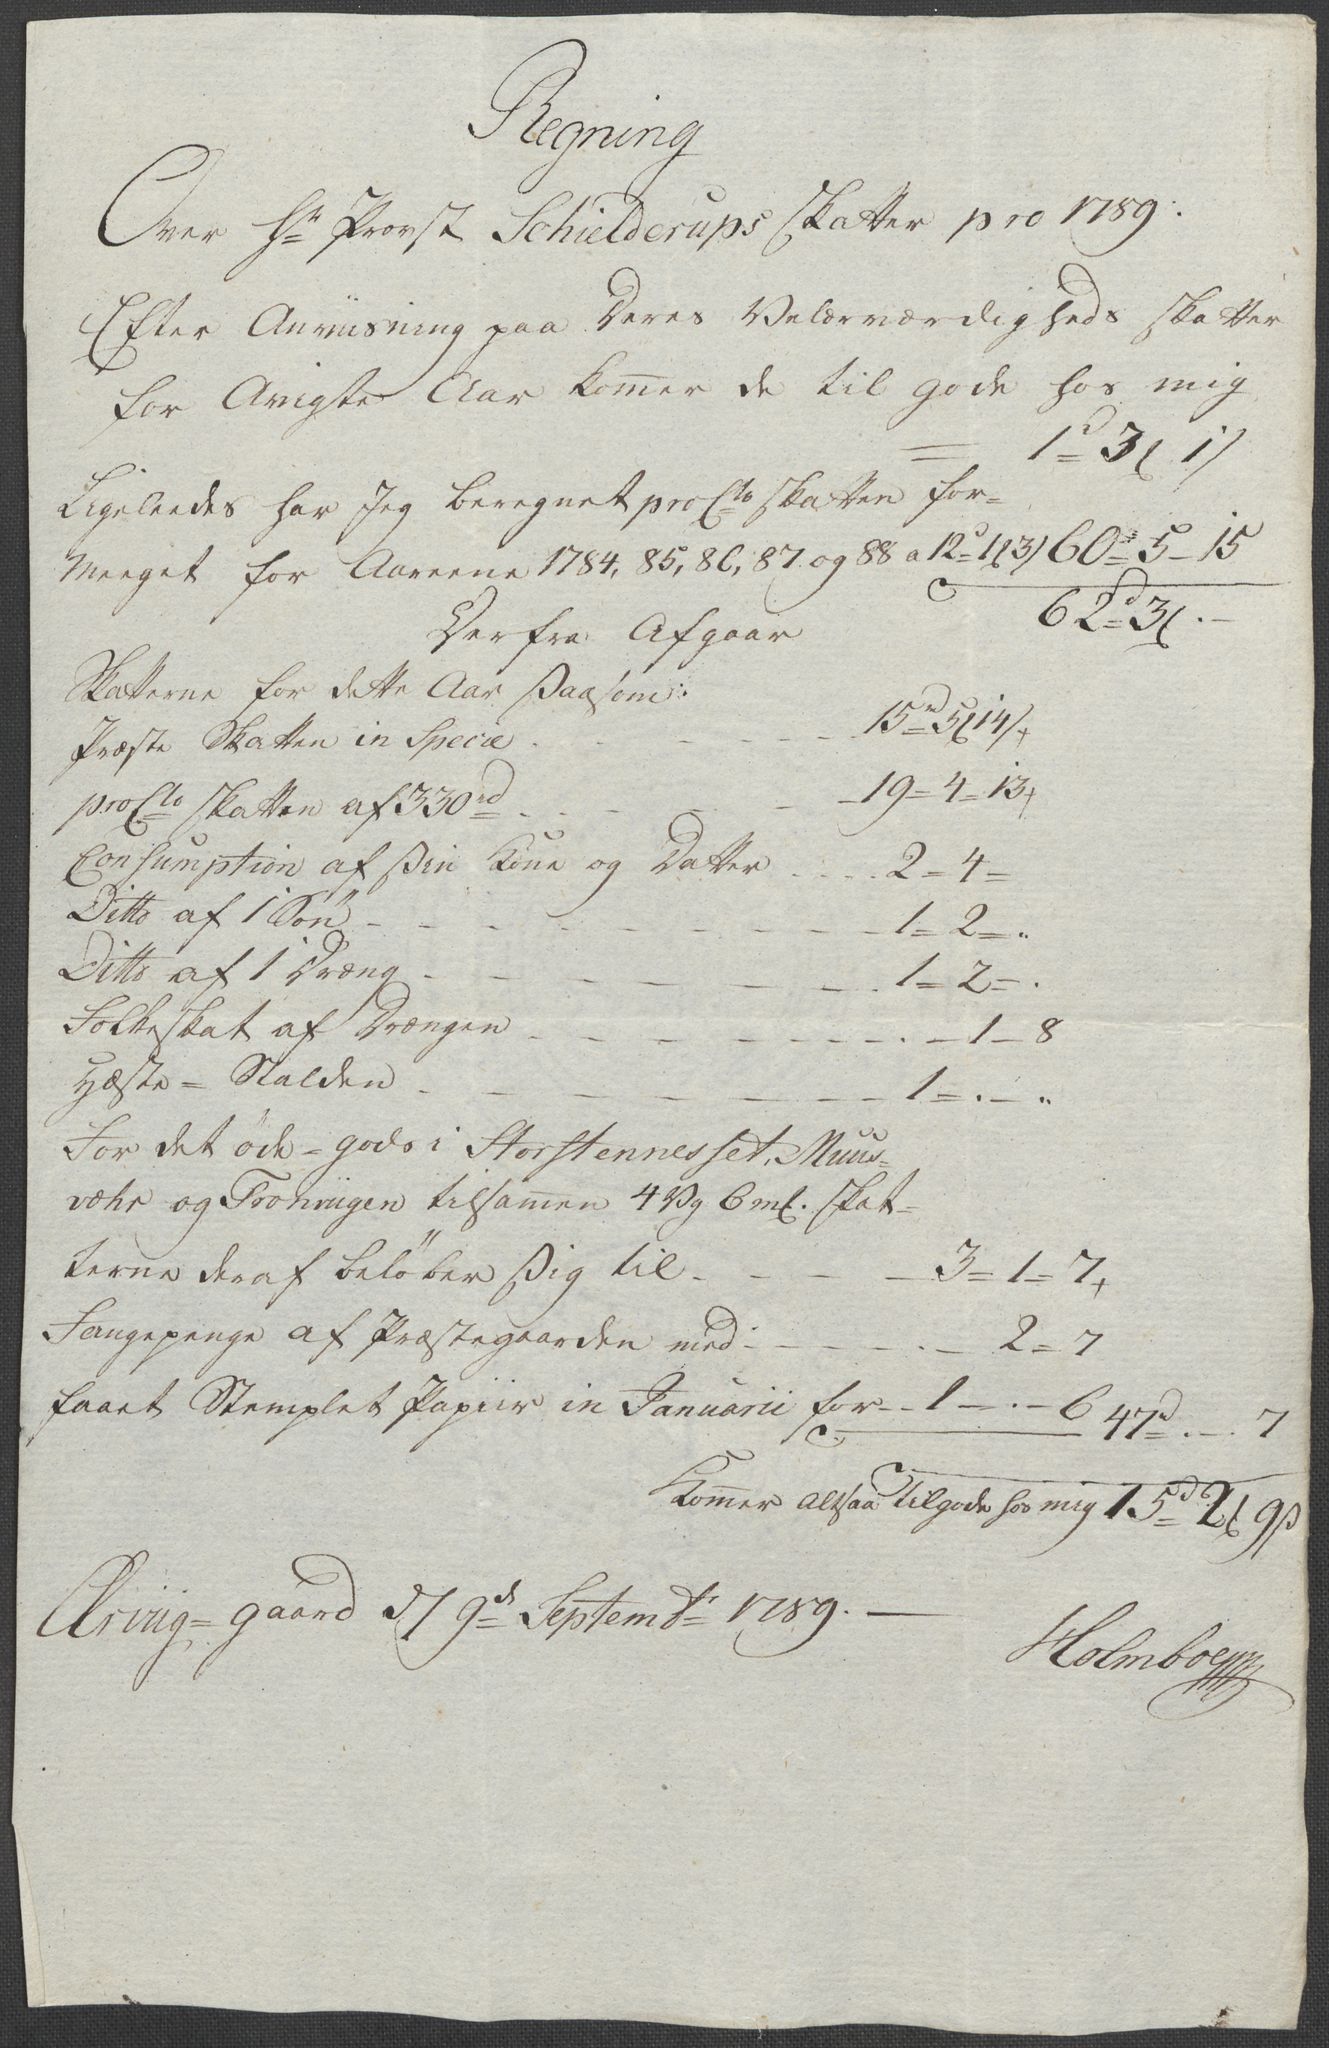 Regning
Over Hr Provst Schielderups Skatter pro 1789.
Efter Anviisning paa Deres Velærværdigheds Skatter
for Avigte Aar kommer de til gode hos mig
= 1d 3 1/
Ligeleedes har Jeg beregnet proCto Skatten for-
Meeget for Aareene 1784, 85, 86, 87 og 88 a 12d 1 3/ 60d 5 - 15
62d 3 . -
Derfra Afgaar
Skatterne for dette Aar saasom:
Præste Skatten in Specie . - - - - 15rd 5 14/+
proCto Skatten af 330rd . - - - 19 = 4 = 13+
Consumption af sin Kone og Datter . . . . 2 = 4 =
Ditto af 1 Søn - - - - - 1 = 2 = "
Ditto af 1 Dræng - - - - - 1 = 2 = .
Folkeskat af Drængen - - - - - . - 1 - 8
Hæste = Skalden - - - - - 1 = . - "
For det øde = gods i Storstennesset, Muus-
væhr og Tronviigen tilsammen 4 Vg 6 mk. Skat-
terne deraf beløber sig til - - - - 3 = 1 = 7+
Fangepenge af Præstegaarden med - - - - . - 2 = 7
faaet Stemplet Papiir in Januarii for - - 1 - . - 6 47d . - . 7
Kommer altsaa tilgode hos mig 15d 2 9ß
Elviig = gaard d/ 9de Septembr 1789. -
Holmboe